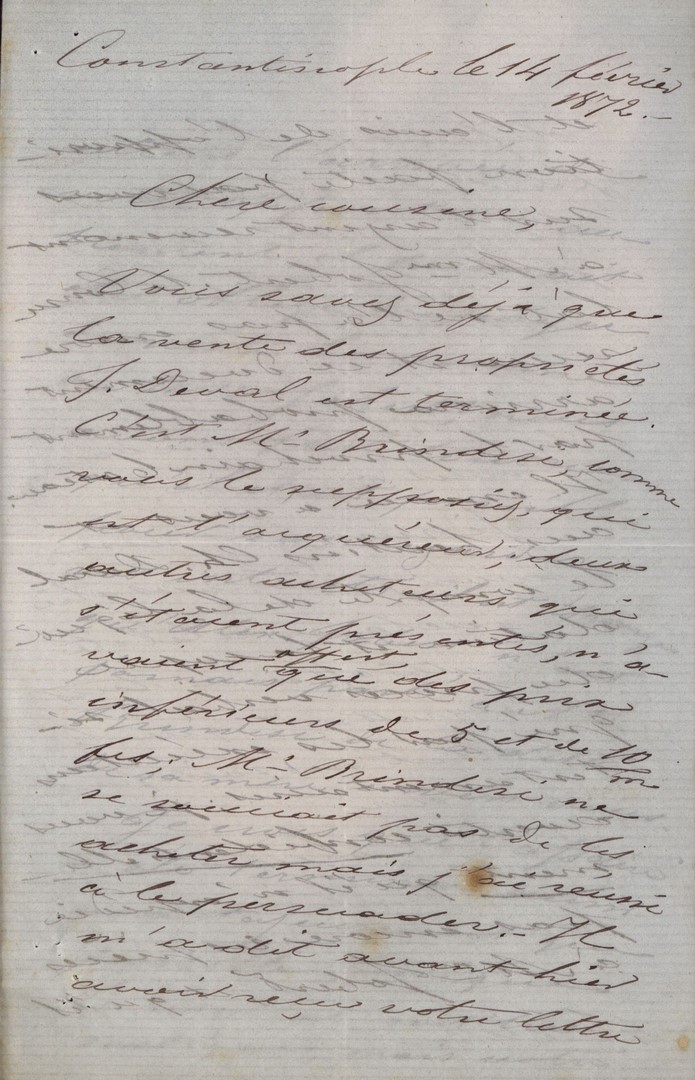 Constantinople le 14 février
1872.-
Chère cousine,
Vous savez déjà que
la vente des propriétés
J. Deval est terminée.
C'est Mr Brindisi, comme
vous le supposiez, qui
est l'acquéreur; deux
autres acheteurs qui
s'étaient présentés, n'a-
vaient offert que des prix
inférieurs de 5 et de 10/m
fcs; Mr Brindisi ne
se souciait pas de les
acheter mais j'ai réussi
à le persuader.- Il
m'a dit avant hier
avoir reçu votre lettre